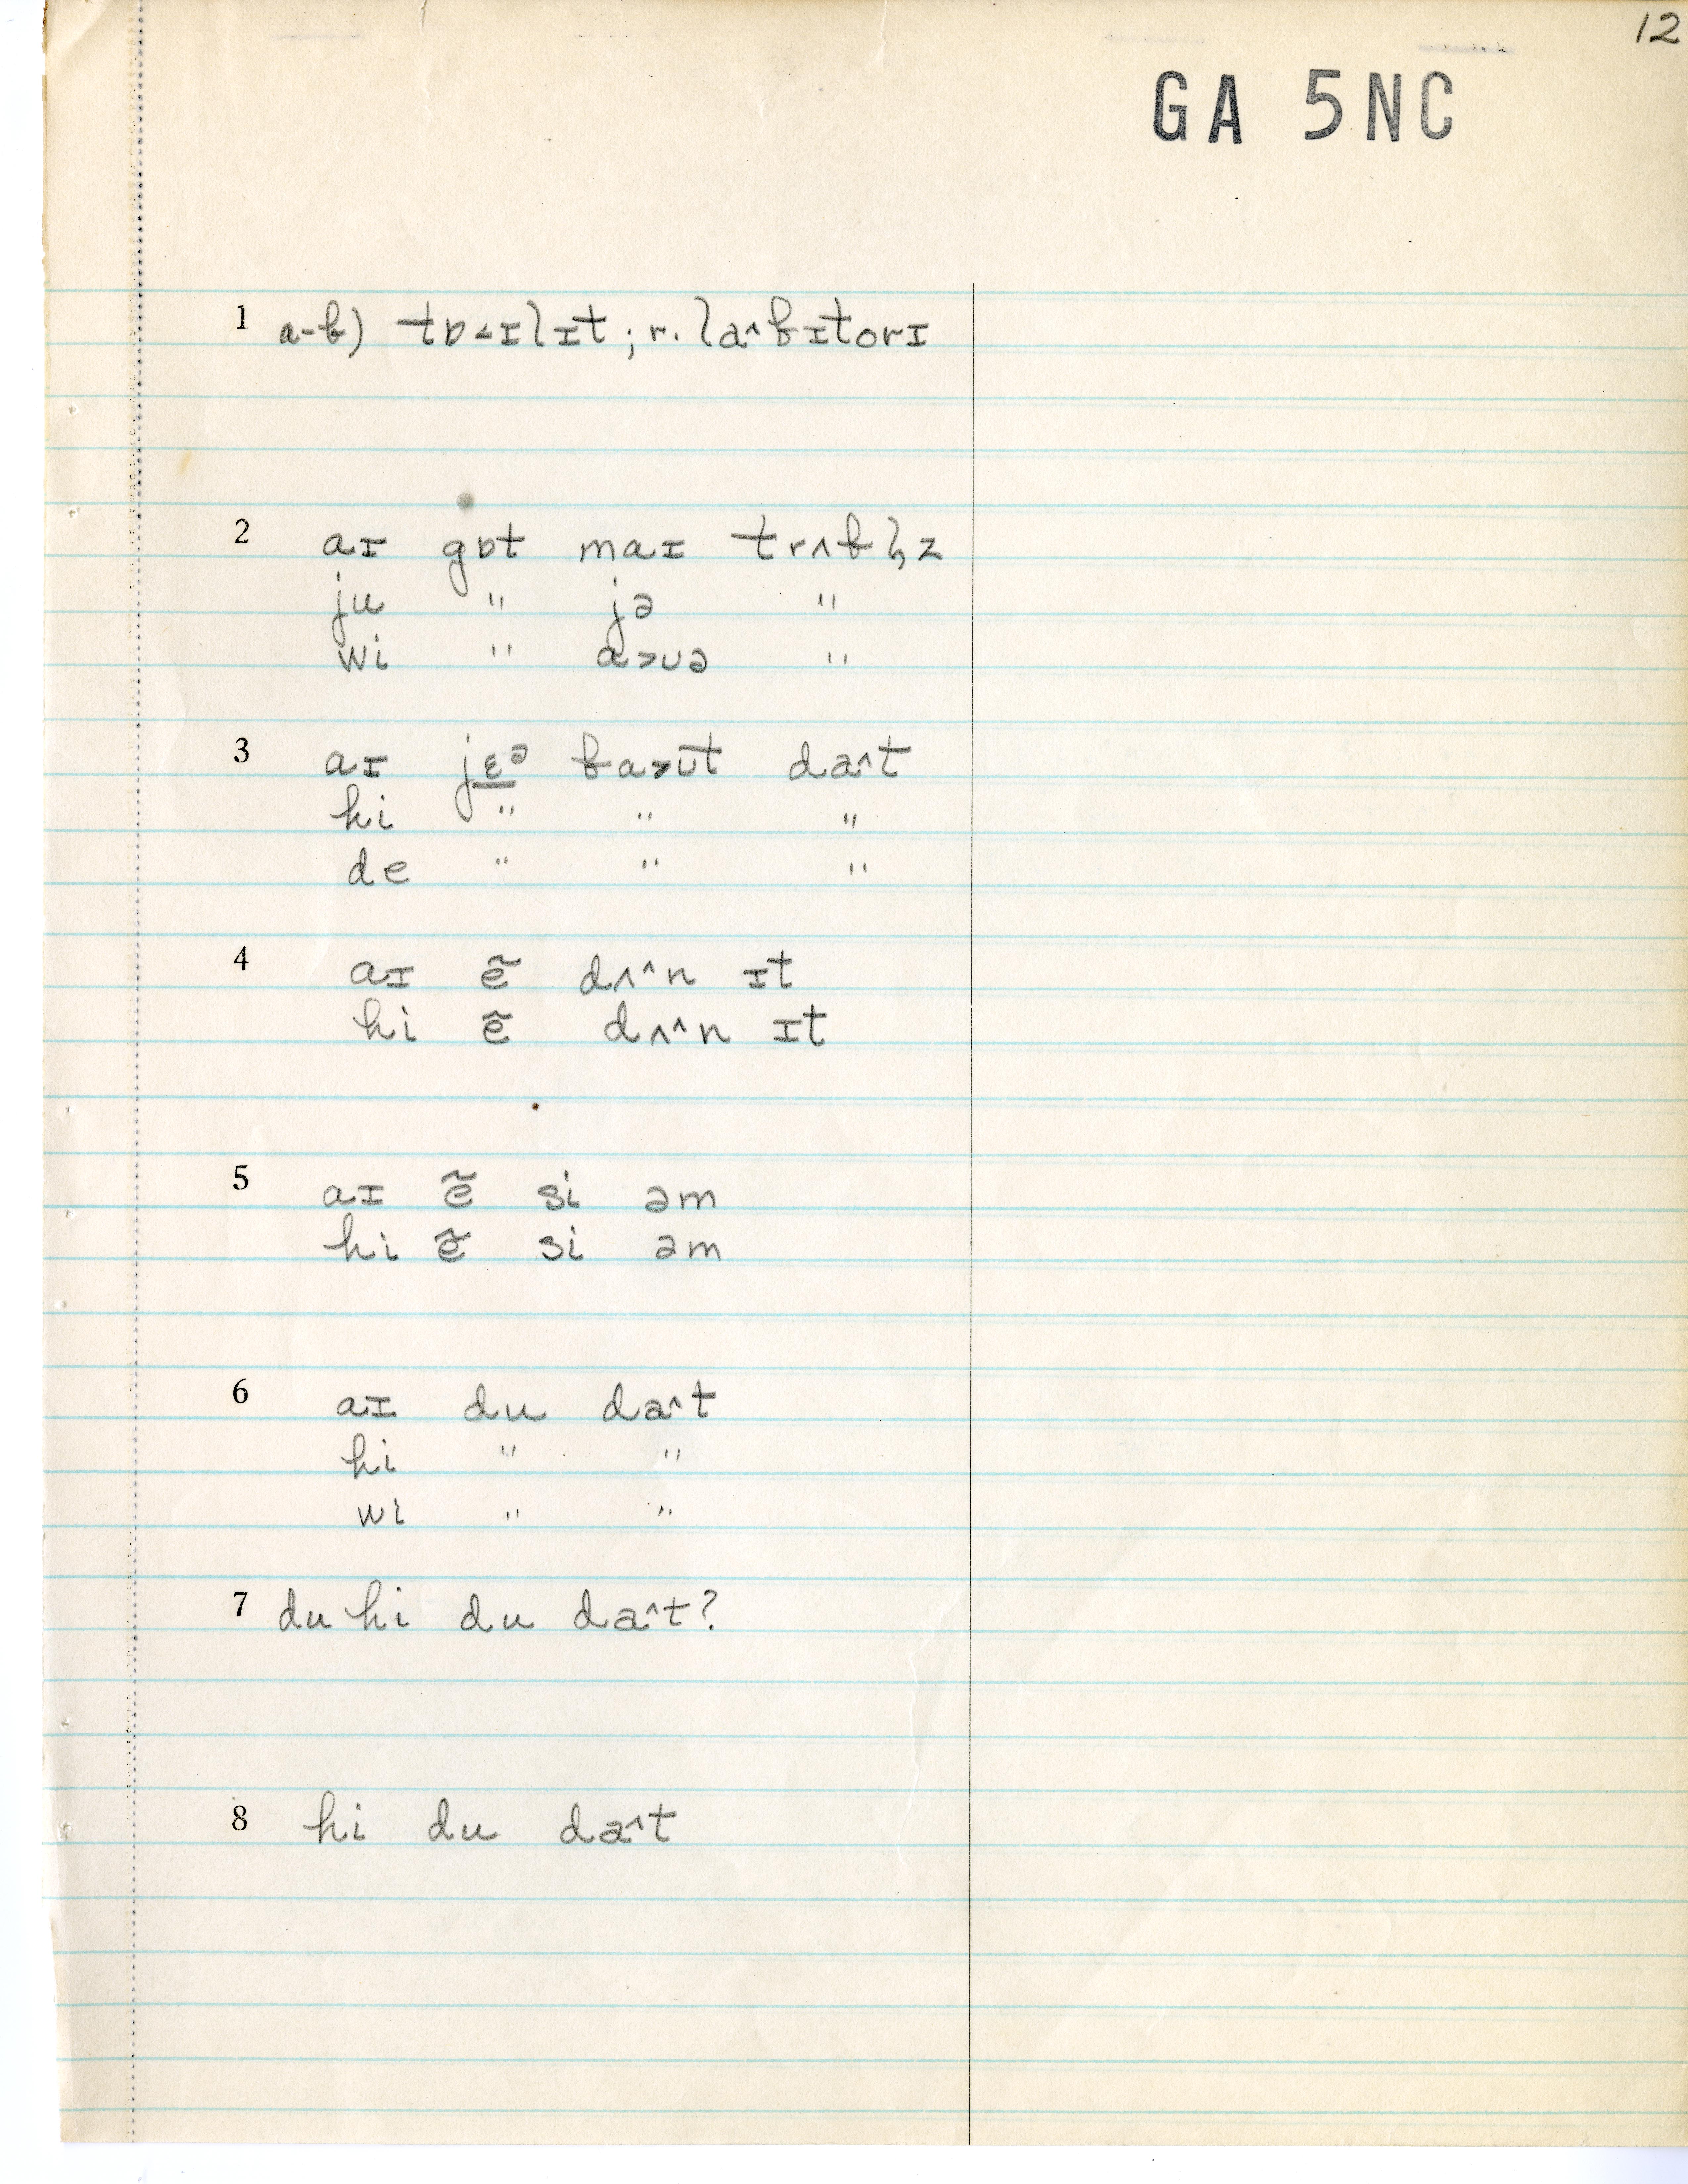 12
GA 5NC
1 a-b) tɒ<ɪlɪt; r. la^bɪtorɪ
2 aɪ gɒt maɪ trʌbl̩z
ju " jə "
wi " a>ʊə "
3 aɪ jɛᵊ ba>ʊt da^t
hi " " "
de " " "
4 aɪ ẽ dʌ^n ɪt
hi ẽ dʌ^n ɪt
5 aɪ ẽ si əm
hi ẽ si əm
6 aɪ du da^t
hi " "
wi " "
7 du hi du da^t?
8 hi du da^t